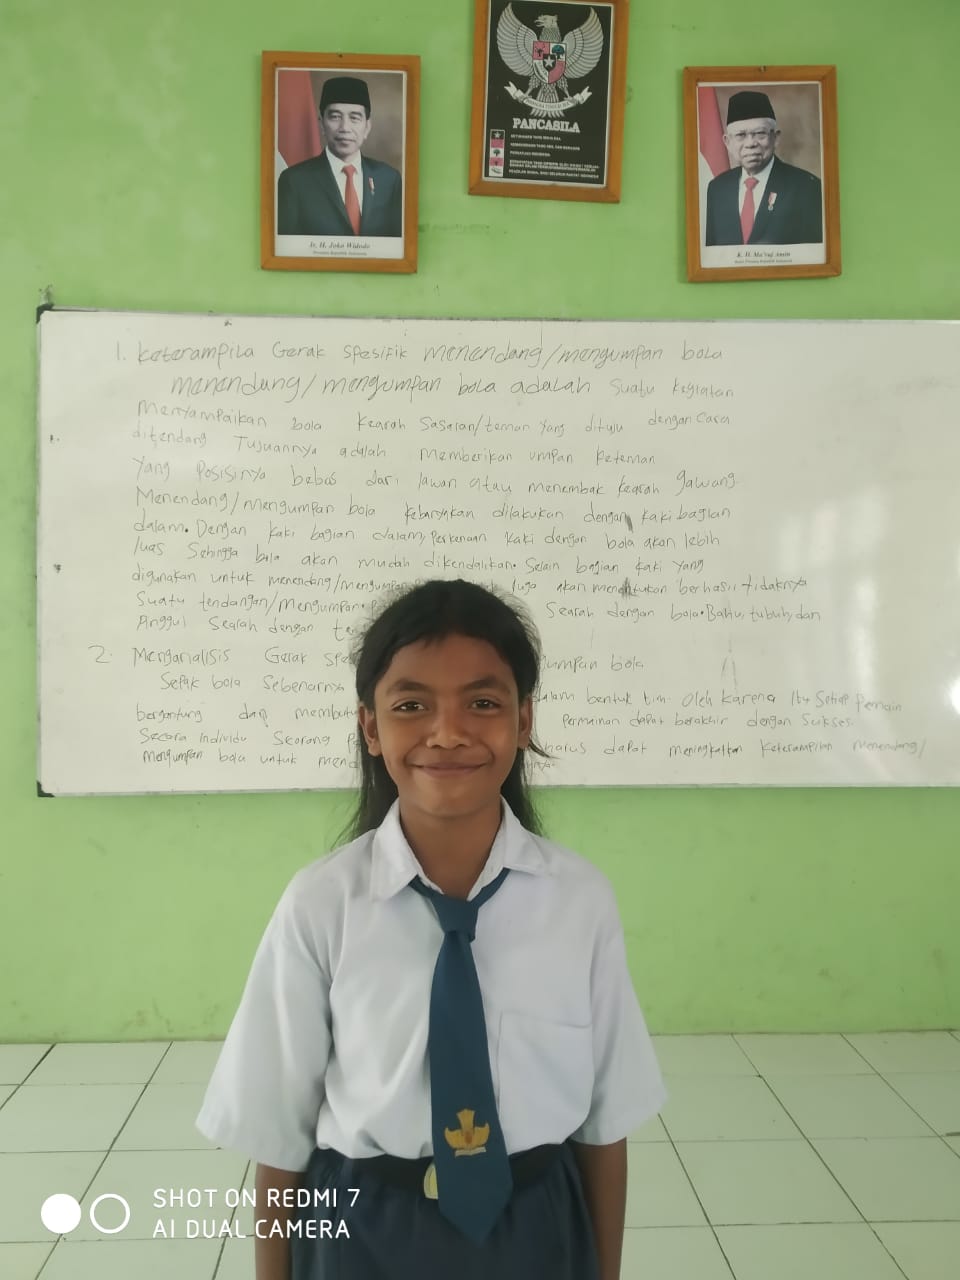 PANCASILA
Ir. H. Joko Widodo
Presiden Republik Indonesia
K. H. Ma'ruf Amin
Wakil Presiden Republik Indonesia
1. Keterampila Gerak spesifik menendang/mengumpan bola
menendang/mengumpan bola adalah suatu kegiatan
Menyampaikan bola Kearah Sasaran/teman yang dituju dengan cara
ditendang Tujuannya adalah memberikan umpan keteman
Yang Posisinya bebas dari lawan atau menembak kearah gawang.
Menendang/mengumpan bola dilakukan dengan kaki bagian
dalam. Dengan kaki bagian dalam, Perkenaan kaki dengan bola akan lebih
luas Sehingga bola akan mudah dikendalikan. Selain bagian kaki yang
digunakan untuk menendang/mengumpan akan menentukan berhasil tidaknya
Suatu tendangan/mengumpan. Searah dengan bola. Bahu, tubuh, dan
Pinggul Searah dengan
2. Menganalisis Gerak bola
Sepak bola Sebenarnya dalam bentuk tim. Oleh karena itu Setiap Pemain
bergantung dan Permainan dapat berakhir dengan Sukses.
Secara Individu Seorang harus dapat meningkatkan keterampilan menendang/
mengumpan bola untuk
SHOT ON REDMI 7
AI DUAL CAMERA